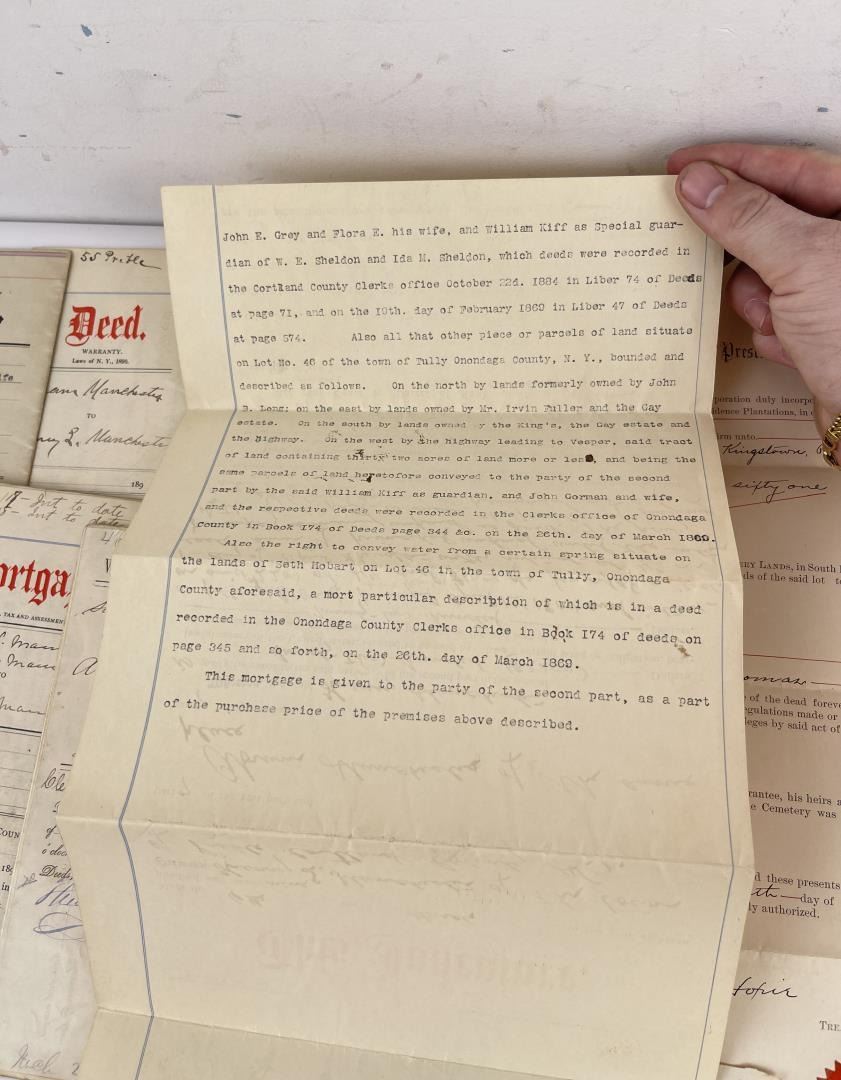 John E. Grey and Flora E. his wife, and William Kiff as Special guar-
dian of W. E. Sheldon and Ida M. Sheldon, which deeds were recorded in
the Cortland County Clerks office October 22d. 1884 in Liber 74 of Deeds
at page 71, and on the 10th. day of February 1869 in Liber 47 of Deeds
at page 574. Also all that other piece or parcels of land situate
on Lot No. 46 of the town of Tully Onondaga County, N. Y., bounded and
described as follows. On the north by lands formerly owned by John
D. Long; on the east by lands owned by Mr. Irvin Fuller and the Gay
estate. On the south by lands owned y the King's, the Gay estate and
the Highway. On the west by the highway leading to Vesper, said tract
of land containing thirty two acres of land more or less, and being the
same parcels of land heretofore conveyed to the party of the second
part by the said William Kiff as guardian, and John Gorman and wife,
and the respective deeds were recorded in the Clerks office of Onondaga
County in Book I74 of Deeds page 344 &c. on the 26th. day of March 1869.
Also the right to convey water from a certain spring situate on
the lands of Seth Hobart on Lot 46 in the town of Tully, Onondaga
County aforesaid, a mort particular description of which is in a deed
recorded in the Onondaga County Clerks office in Book I74 of deeds on
page 345 and so forth, on the 26th. day of March 1869.
This mortgage is given to the party of the second part, as a part
of the purchase price of the premises above described.
55 Preble
Deed.
WARRANTY.
Laws of N. Y., 1890.
Manchester
TO
L. Manchester
189
Int to date
Int to date
TAX AND ASSESSMEN
poration duly incorpo
idence Plantations, in
unto
Kingstown,
sixty one
LANDS, in South
ds of the said lot to
of the dead foreve
egulations made or
leges by said act of
rantee, his heirs a
e Cemetery was
d these presents
day of
ly authorized.
TRE